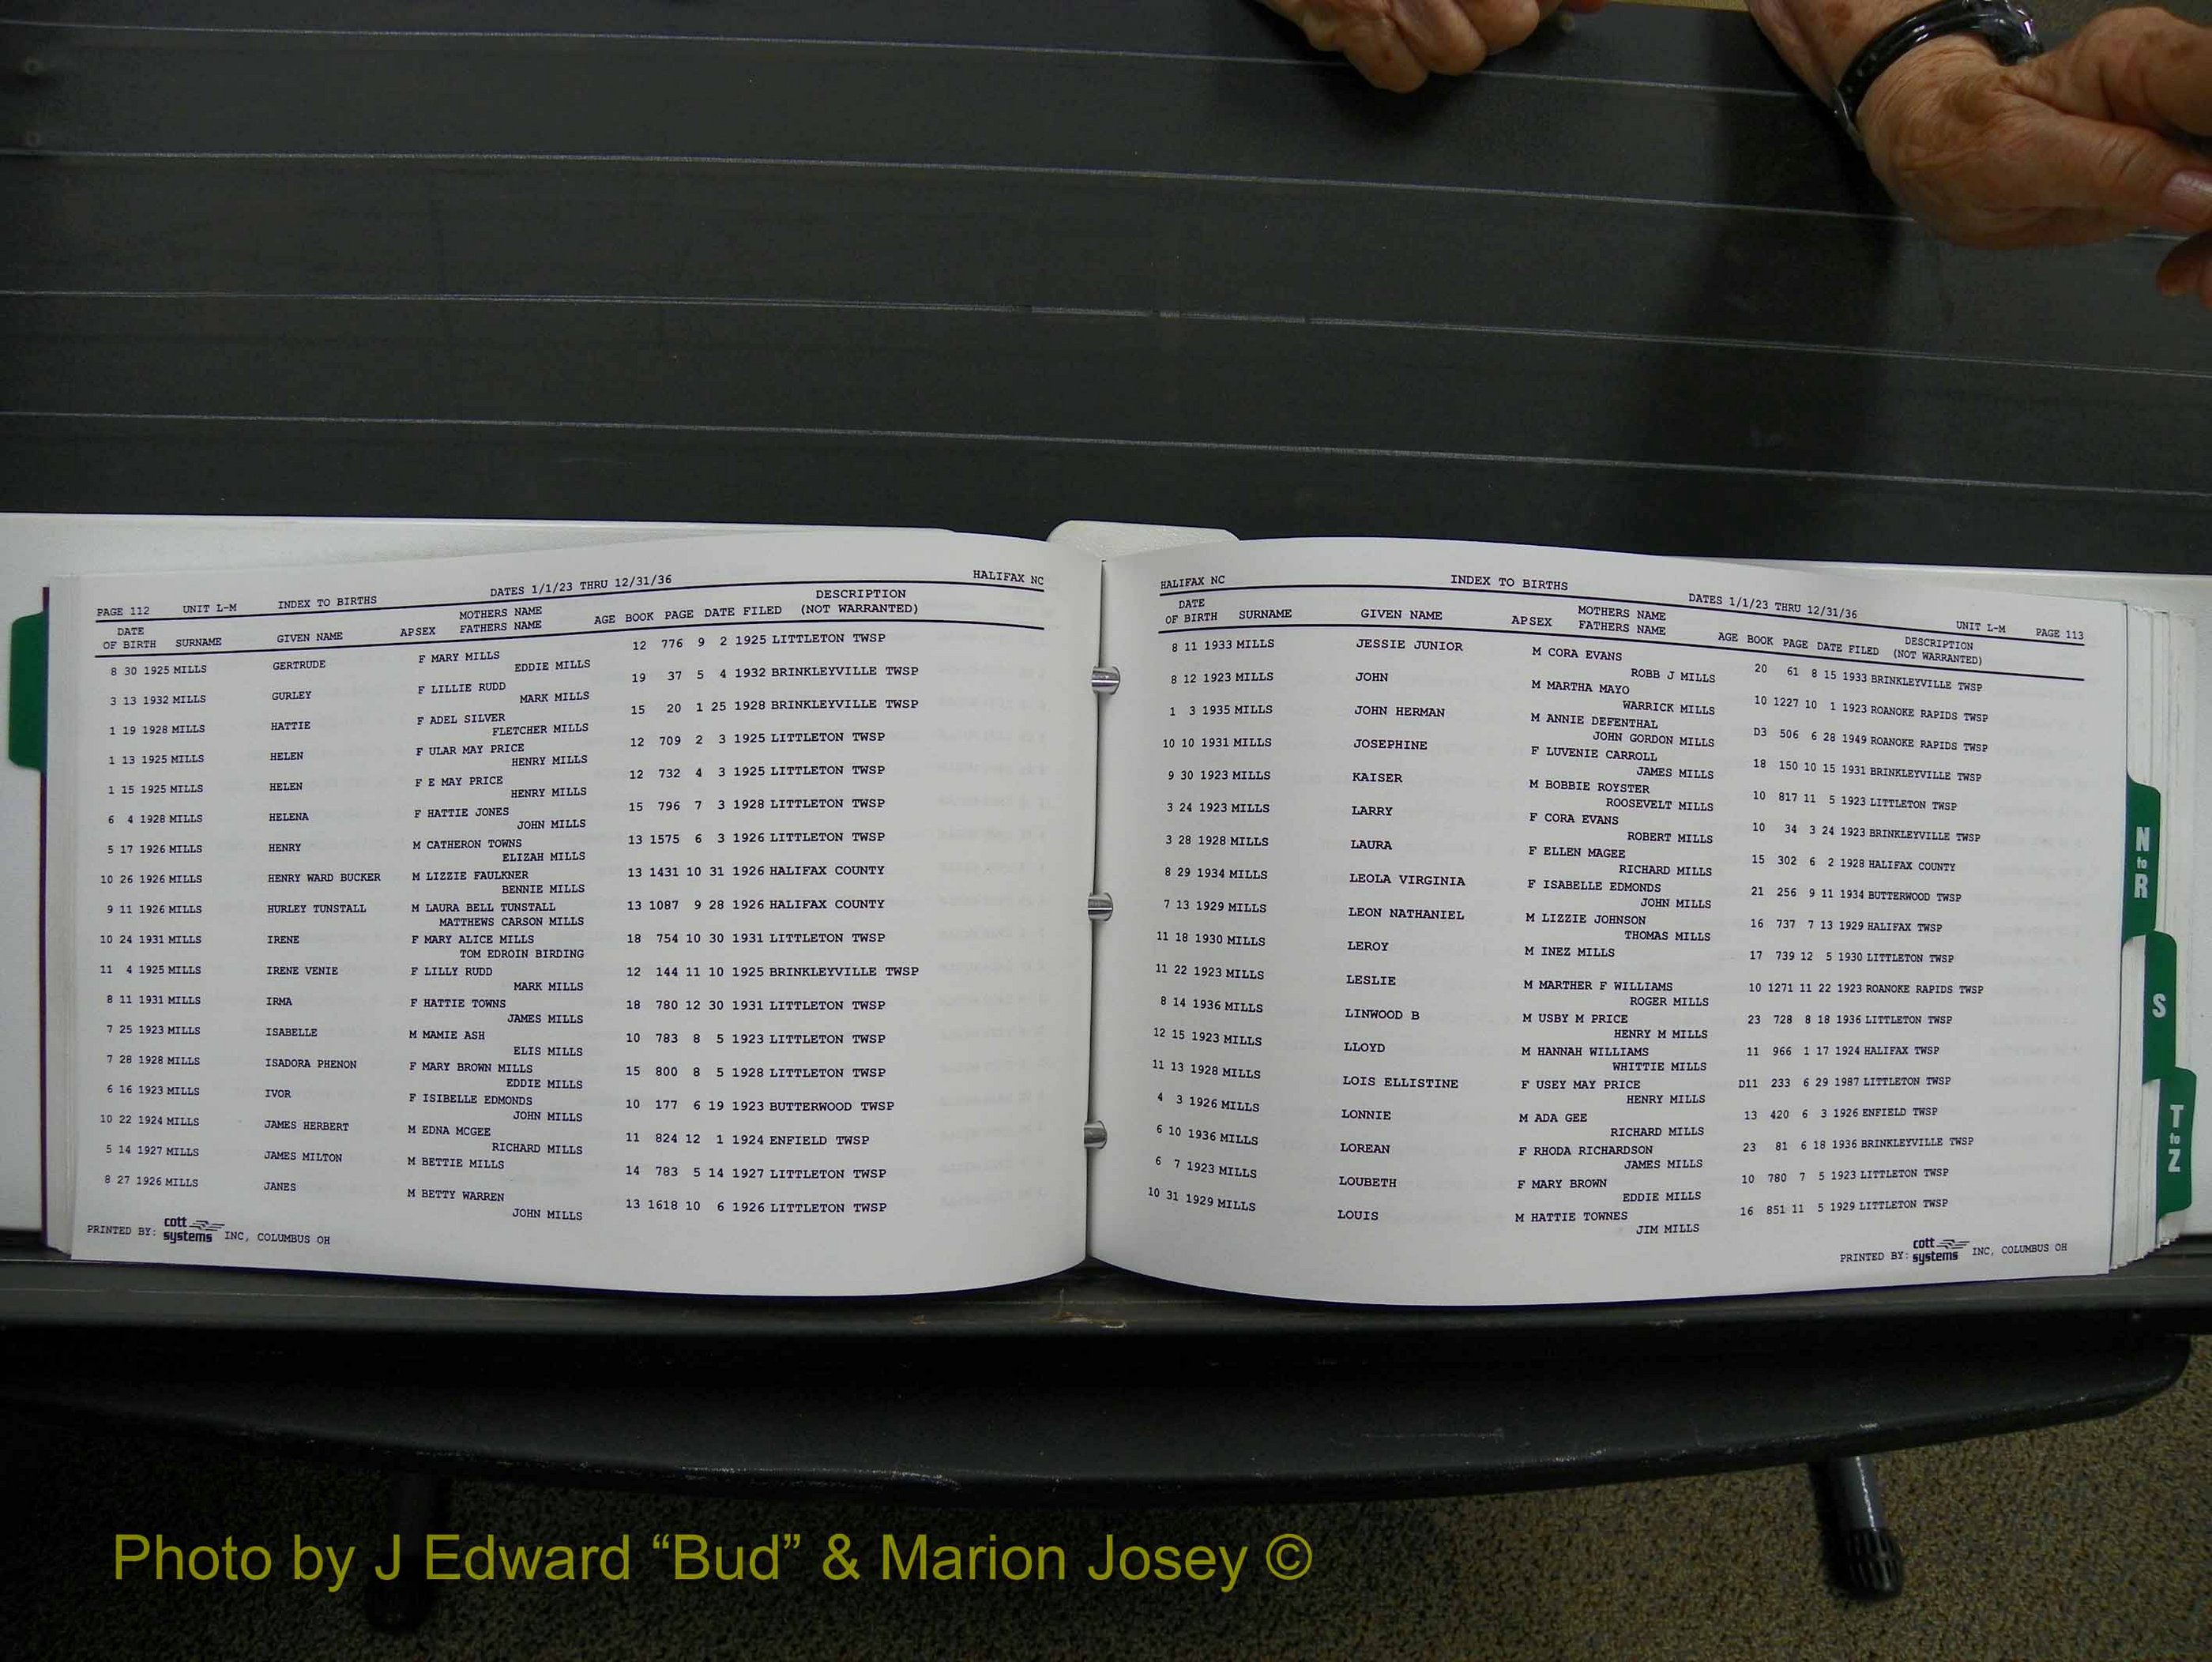 PAGE 112 UNIT L-M INDEX TO BIRTHS DATES 1/1/23 THRU 12/31/36 HALIFAX NC
DATE OF BIRTH SURNAME GIVEN NAME APSEX MOTHERS NAME FATHERS NAME AGE BOOK PAGE DATE FILED DESCRIPTION (NOT WARRANTED)
8 30 1925 MILLS GERTRUDE F MARY MILLS 12 776 9 2 1925 LITTLETON TWSP
EDDIE MILLS
3 13 1932 MILLS GURLEY F LILLIE RUDD 19 37 5 4 1932 BRINKLEYVILLE TWSP
MARK MILLS
1 19 1928 MILLS HATTIE F ADEL SILVER 15 20 1 25 1928 BRINKLEYVILLE TWSP
FLETCHER MILLS
1 13 1925 MILLS HELEN F ULAR MAY PRICE 12 709 2 3 1925 LITTLETON TWSP
HENRY MILLS
1 15 1925 MILLS HELEN F E MAY PRICE 12 732 4 3 1925 LITTLETON TWSP
HENRY MILLS
6 4 1928 MILLS HELENA F HATTIE JONES 15 796 7 3 1928 LITTLETON TWSP
JOHN MILLS
5 17 1926 MILLS HENRY M CATHERON TOWNS 13 1575 6 3 1926 LITTLETON TWSP
ELIZAH MILLS
10 26 1926 MILLS HENRY WARD BUCKER M LIZZIE FAULKNER 13 1431 10 31 1926 HALIFAX COUNTY
BENNIE MILLS
9 11 1926 MILLS HURLEY TUNSTALL M LAURA BELL TUNSTALL 13 1087 9 28 1926 HALIFAX COUNTY
MATTHEWS CARSON MILLS
10 24 1931 MILLS IRENE F MARY ALICE MILLS 18 754 10 30 1931 LITTLETON TWSP
TOM EDROIN BIRDING
11 4 1925 MILLS IRENE VENIE F LILLY RUDD 12 144 11 10 1925 BRINKLEYVILLE TWSP
MARK MILLS
8 11 1931 MILLS IRMA F HATTIE TOWNS 18 780 12 30 1931 LITTLETON TWSP
JAMES MILLS
7 25 1923 MILLS ISABELLE M MAMIE ASH 10 783 8 5 1923 LITTLETON TWSP
ELIS MILLS
7 28 1928 MILLS ISADORA PHENON F MARY BROWN MILLS 15 800 8 5 1928 LITTLETON TWSP
EDDIE MILLS
6 16 1923 MILLS IVOR F ISIBELLE EDMONDS 10 177 6 19 1923 BUTTERWOOD TWSP
JOHN MILLS
10 22 1924 MILLS JAMES HERBERT M EDNA MCGEE 11 824 12 1 1924 ENFIELD TWSP
RICHARD MILLS
5 14 1927 MILLS JAMES MILTON M BETTIE MILLS 14 783 5 14 1927 LITTLETON TWSP
8 27 1926 MILLS JANES M BETTY WARREN 13 1618 10 6 1926 LITTLETON TWSP
JOHN MILLS
PRINTED BY: cott systems INC, COLUMBUS OH
HALIFAX NC INDEX TO BIRTHS DATES 1/1/23 THRU 12/31/36 UNIT L-M PAGE 113
DATE OF BIRTH SURNAME GIVEN NAME APSEX MOTHERS NAME FATHERS NAME AGE BOOK PAGE DATE FILED DESCRIPTION (NOT WARRANTED)
8 11 1933 MILLS JESSIE JUNIOR M CORA EVANS 20 61 8 15 1933 BRINKLEYVILLE TWSP
ROBB J MILLS
8 12 1923 MILLS JOHN M MARTHA MAYO 10 1227 10 1 1923 ROANOKE RAPIDS TWSP
WARRICK MILLS
1 3 1935 MILLS JOHN HERMAN M ANNIE DEFENTHAL D3 506 6 28 1949 ROANOKE RAPIDS TWSP
JOHN GORDON MILLS
10 10 1931 MILLS JOSEPHINE F LUVENIE CARROLL 18 150 10 15 1931 BRINKLEYVILLE TWSP
JAMES MILLS
9 30 1923 MILLS KAISER M BOBBIE ROYSTER 10 817 11 5 1923 LITTLETON TWSP
ROOSEVELT MILLS
3 24 1923 MILLS LARRY F CORA EVANS 10 34 3 24 1923 BRINKLEYVILLE TWSP
ROBERT MILLS
3 28 1928 MILLS LAURA F ELLEN MAGEE 15 302 6 2 1928 HALIFAX COUNTY
RICHARD MILLS
8 29 1934 MILLS LEOLA VIRGINIA F ISABELLE EDMONDS 21 256 9 11 1934 BUTTERWOOD TWSP
JOHN MILLS
7 13 1929 MILLS LEON NATHANIEL M LIZZIE JOHNSON 16 737 7 13 1929 HALIFAX TWSP
THOMAS MILLS
11 18 1930 MILLS LEROY M INEZ MILLS 17 739 12 5 1930 LITTLETON TWSP
11 22 1923 MILLS LESLIE M MARTHER F WILLIAMS 10 1271 11 22 1923 ROANOKE RAPIDS TWSP
ROGER MILLS
8 14 1936 MILLS LINWOOD B M USBY M PRICE 23 728 8 18 1936 LITTLETON TWSP
HENRY M MILLS
12 15 1923 MILLS LLOYD M HANNAH WILLIAMS 11 966 1 17 1924 HALIFAX TWSP
WHITTIE MILLS
11 13 1928 MILLS LOIS ELLISTINE F USEY MAY PRICE D11 233 6 29 1987 LITTLETON TWSP
HENRY MILLS
4 3 1926 MILLS LONNIE M ADA GEE 13 420 6 3 1926 ENFIELD TWSP
RICHARD MILLS
6 10 1936 MILLS LOREAN F RHODA RICHARDSON 23 81 6 18 1936 BRINKLEYVILLE TWSP
JAMES MILLS
6 7 1923 MILLS LOUBETH F MARY BROWN 10 780 7 5 1923 LITTLETON TWSP
EDDIE MILLS
10 31 1929 MILLS LOUIS M HATTIE TOWNES 16 851 11 5 1929 LITTLETON TWSP
JIM MILLS
PRINTED BY: cott systems INC, COLUMBUS OH
N to R
S
T to Z
Photo by J Edward “Bud” & Marion Josey ©